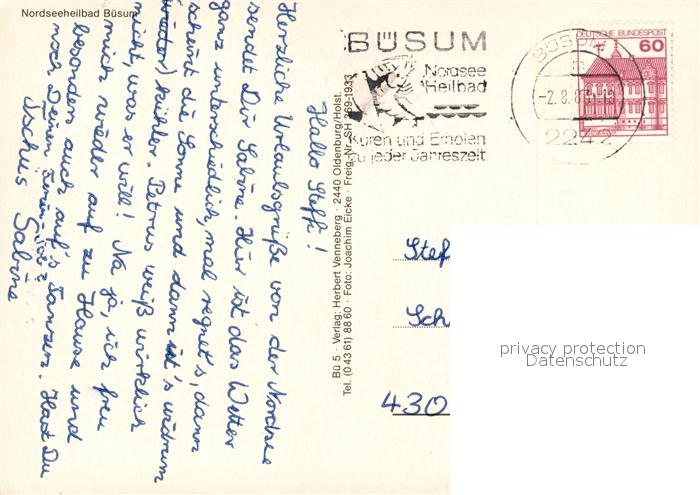 Nordseeheilbad Büsum
Hallo Steffi!
Herzliche Urlaubsgrüße von der Nordsee
sendet Dir Sabine. Hier ist das Wetter
ganz unterschiedlich, mal regnet's, dann
scheint die Sonne und dann ist's wiederum
kühler. Petrus weiß wirklich
nicht, was er will! Na ja, ich freu
mich wieder auf zu Hause und
besonders auch auf's Tanzen. Hast Du
noch Deinen
Tschüs Sabine
Bü 5 · Verlag: Herbert Venneberg · 2440 Oldenburg/Holst.
Tel. (0 43 61) 88 60 · Foto: Joachim Eicke · Freig. Nr. SH 269-1933
BÜSUM
Nordsee
Heilbad
Kuren und Erholen
zu jeder Jahreszeit
BÜSUM
-2.8.8
2242
DEUTSCHE BUNDESPOST
60
Stef
Sch
430
privacy protection
Datenschutz